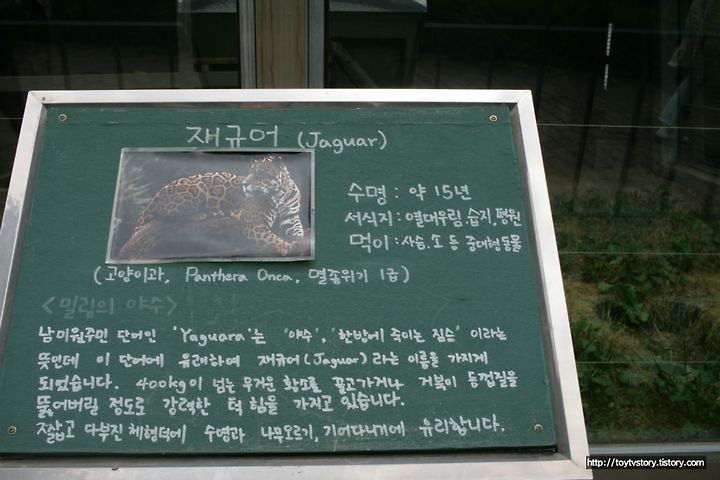 재규어 (Jaguar)
수명 : 약 15년
서식지 : 열대우림, 습지, 평원
먹이 : 사슴, 소 등 중대형동물
(고양이과, Panthera Onca, 멸종위기 1급)
<밀림의 야수>
남미원주민 단어인 'Yaguara'는 '야수', '한방에 죽이는 짐승' 이라는
뜻인데 이 단어에 유래하여 재규어(Jaguar)라는 이름을 가지게
되었습니다. 400kg이 넘는 무거운 황소를 끌고가거나 거북이 등껍질을
뚫어버릴 정도로 강력한 턱 힘을 가지고 있습니다.
짧고 다부진 체형덕에 수영과 나무오르기, 기어다니기에 유리합니다.
http://toytvstory.tistory.com